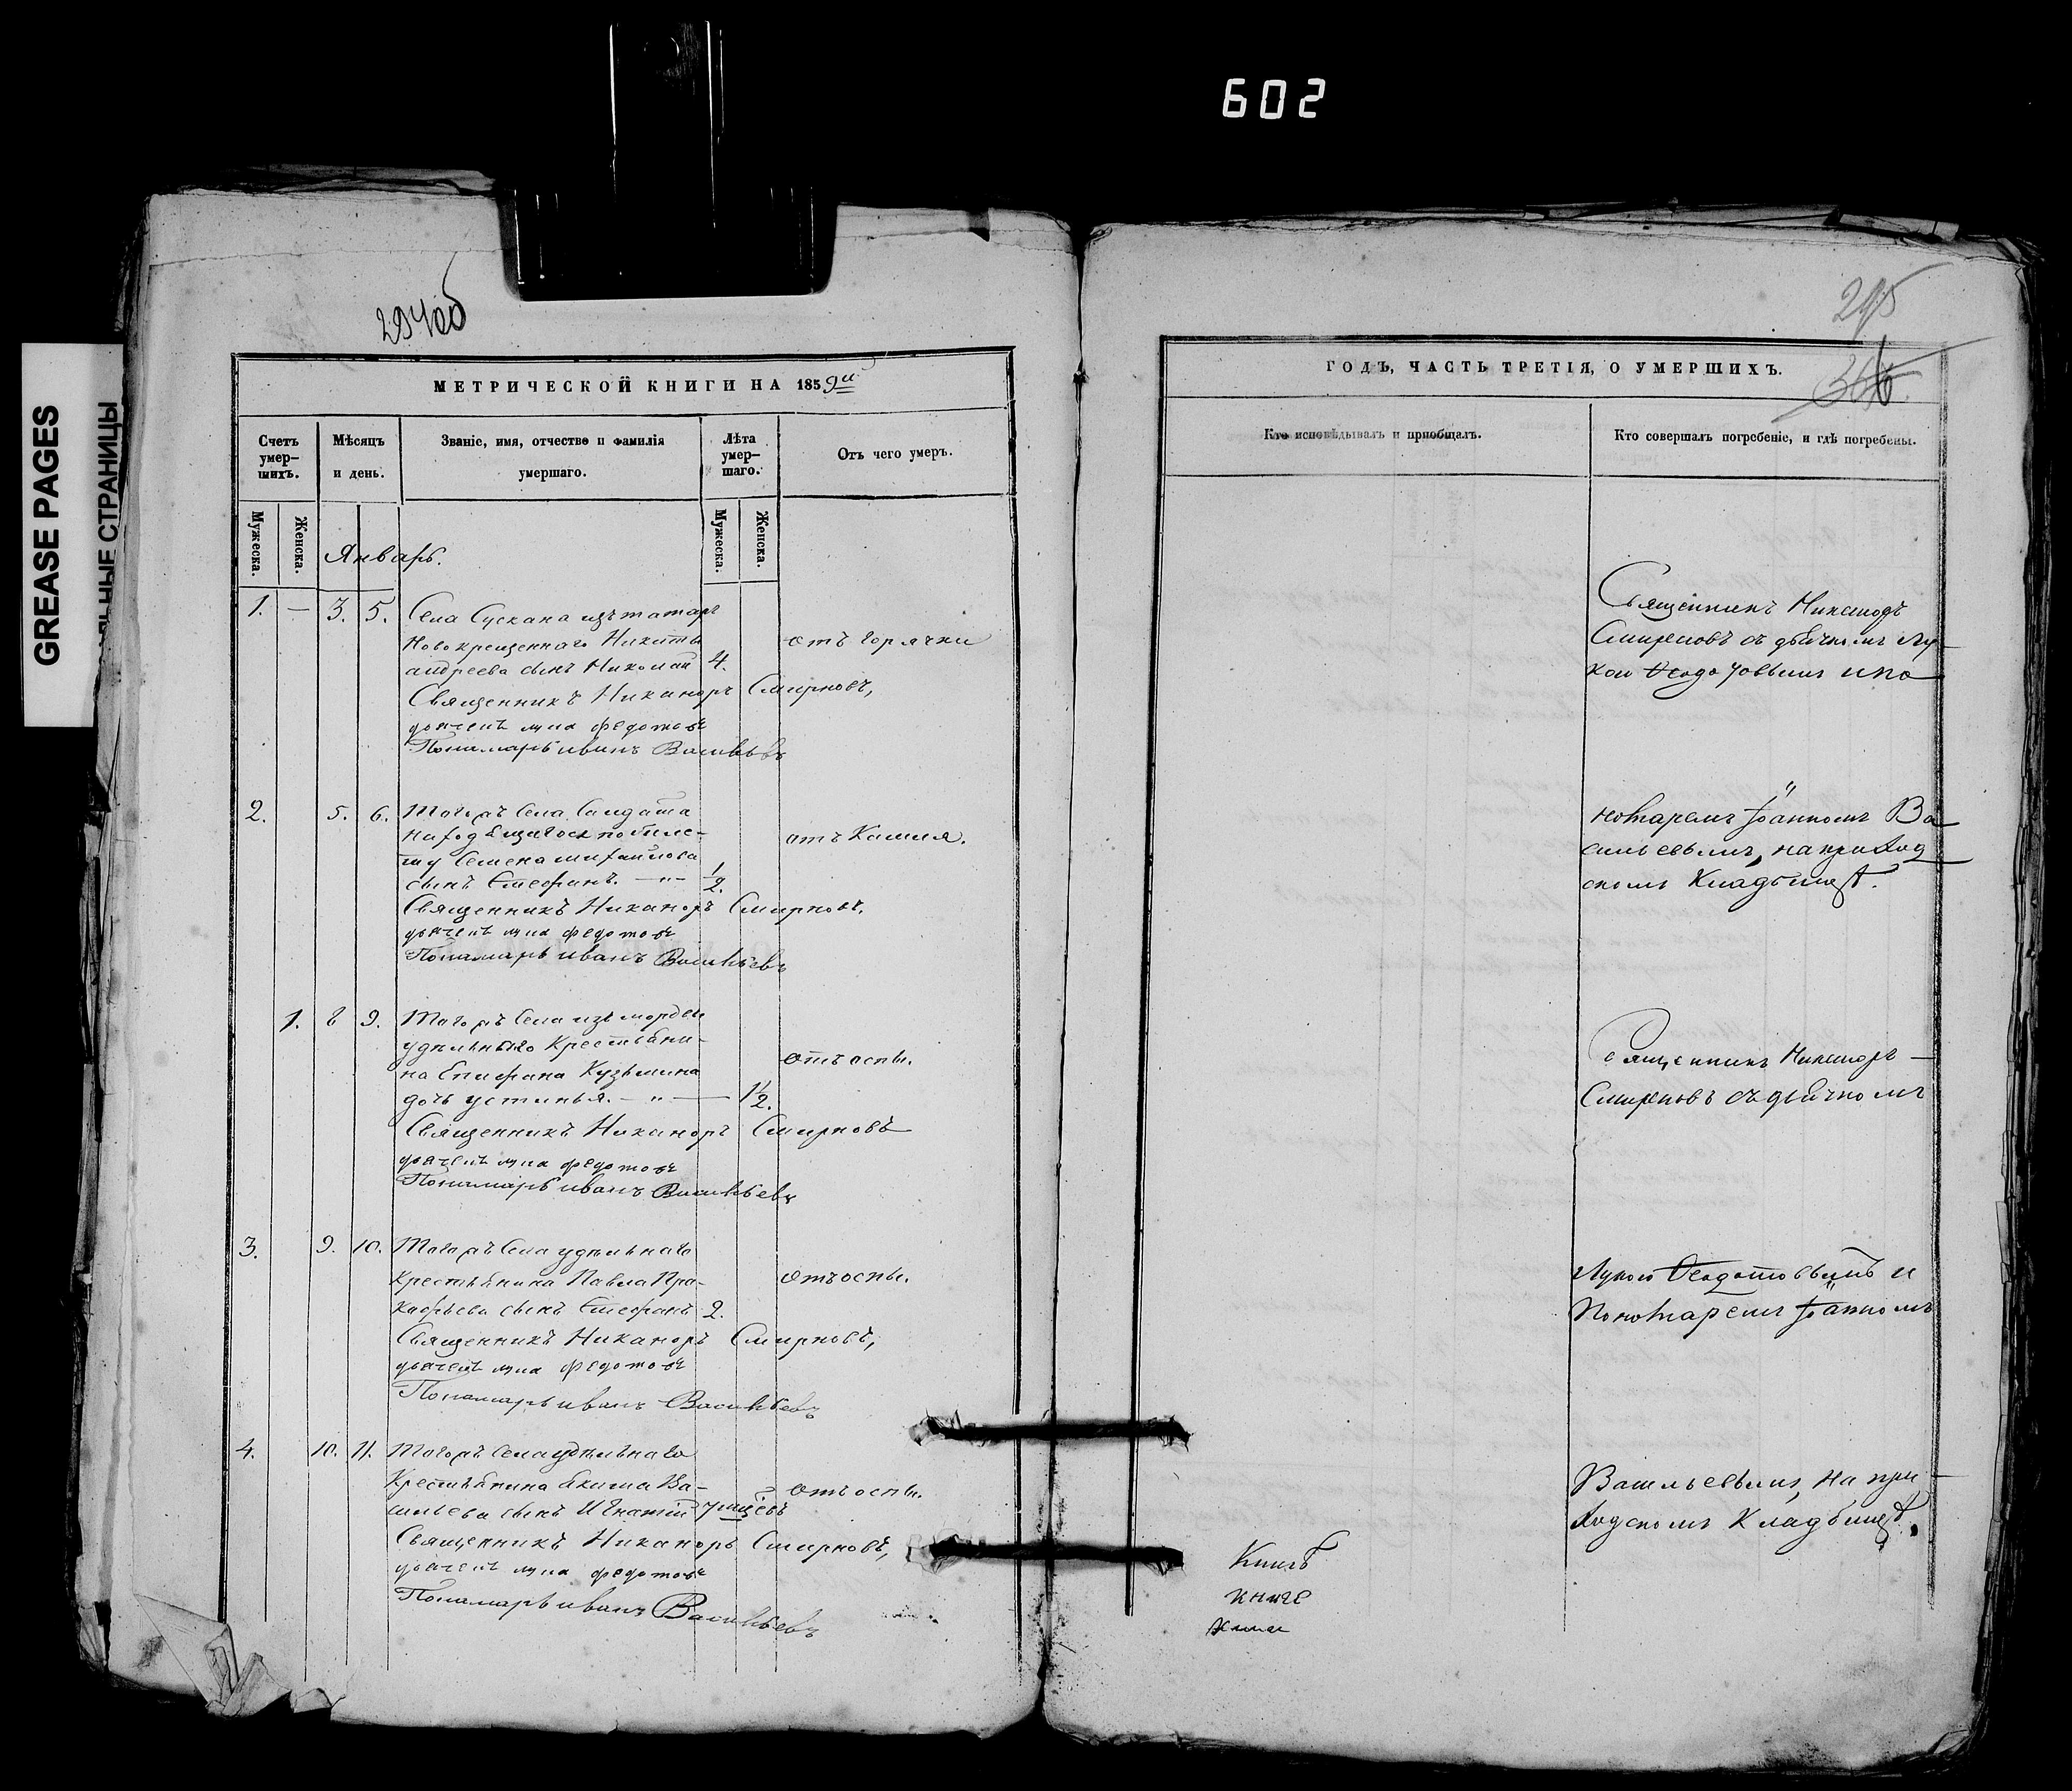 602
GREASE PAGES
НЫЕ СТРАНИЦЫ
294об
МЕТРИЧЕСКОЙ КНИГИ НА 1859й
Счетъ умер-
шихъ.
Мѣсяцъ
и день.
Званіе, имя, отчество и фамилія
умершаго.
Лѣта
умер-
шаго.
Отъ чего умеръ.
Мужеска.
Женска.
Мужеска.
Женска.
Январь.
1. — 3. 5. Села Сускана изъ татаръ
Новокрещеннаго Никиты отъ горячки
андреева сынъ Николай 4.
Священникъ Никаноръ Смирновъ,
дьячекъ лука федотовъ
Пономарь иванъ Васильевъ
2. 5. 6. Тогожъ Села Солдата
находящагося побиле- отъ Кашля.
ту Семена михайлова
сынъ Стефанъ. — „ — 1/2.
Священникъ Никаноръ Смирновъ,
дьячекъ лука федотовъ
Пономарь иванъ Васильевъ
1. 8 9. Тогожъ Села изъ мордвы
удѣльнаго Крестьяни-
на Епифана Кузьмина отъ оспы.
дочь устинья. — „ — 1 1/2.
Священникъ Никаноръ Смирновъ
дьячекъ лука федотовъ
Пономарь иванъ Васильевъ
3. 9. 10. Тогожъ Села удѣльнаго
Крестьянина Павла Про- отъ оспы.
кофьева сынъ Стефанъ 2.
Священникъ Никаноръ Смирновъ,
дьячекъ лука федотовъ
Пономарь иванъ Васильевъ
4. 10. 11. Тогожъ Села удѣльнаго
Крестьянина Якима Ва- отъ оспы.
сильева сынъ Игнатій 7 мцѣвъ
Священникъ Никаноръ Смирновъ,
дьячекъ лука федотовъ
Пономарь иванъ Васильевъ
295
ГОДЪ, ЧАСТЬ ТРЕТІЯ, О УМЕРШИХЪ.
Кто исповѣдывалъ и приобщалъ.
Кто совершалъ погребеніе, и гдѣ погребены.
Священникъ Никаноръ
Смирновъ съ дьячкомъ Лу-
кою Ѳеодотовымъ и по
номаремъ Іоанномъ Ва
сильевымъ, на приход
скомъ Кладбищѣ.
Священникъ Никаноръ —
Смирновъ съ дьячкомъ
Лукою Ѳеодотовымъ и
Пономаремъ Іоанномъ
Васильевымъ, на при —
ходскомъ Кладбищѣ.
Книгъ
книге